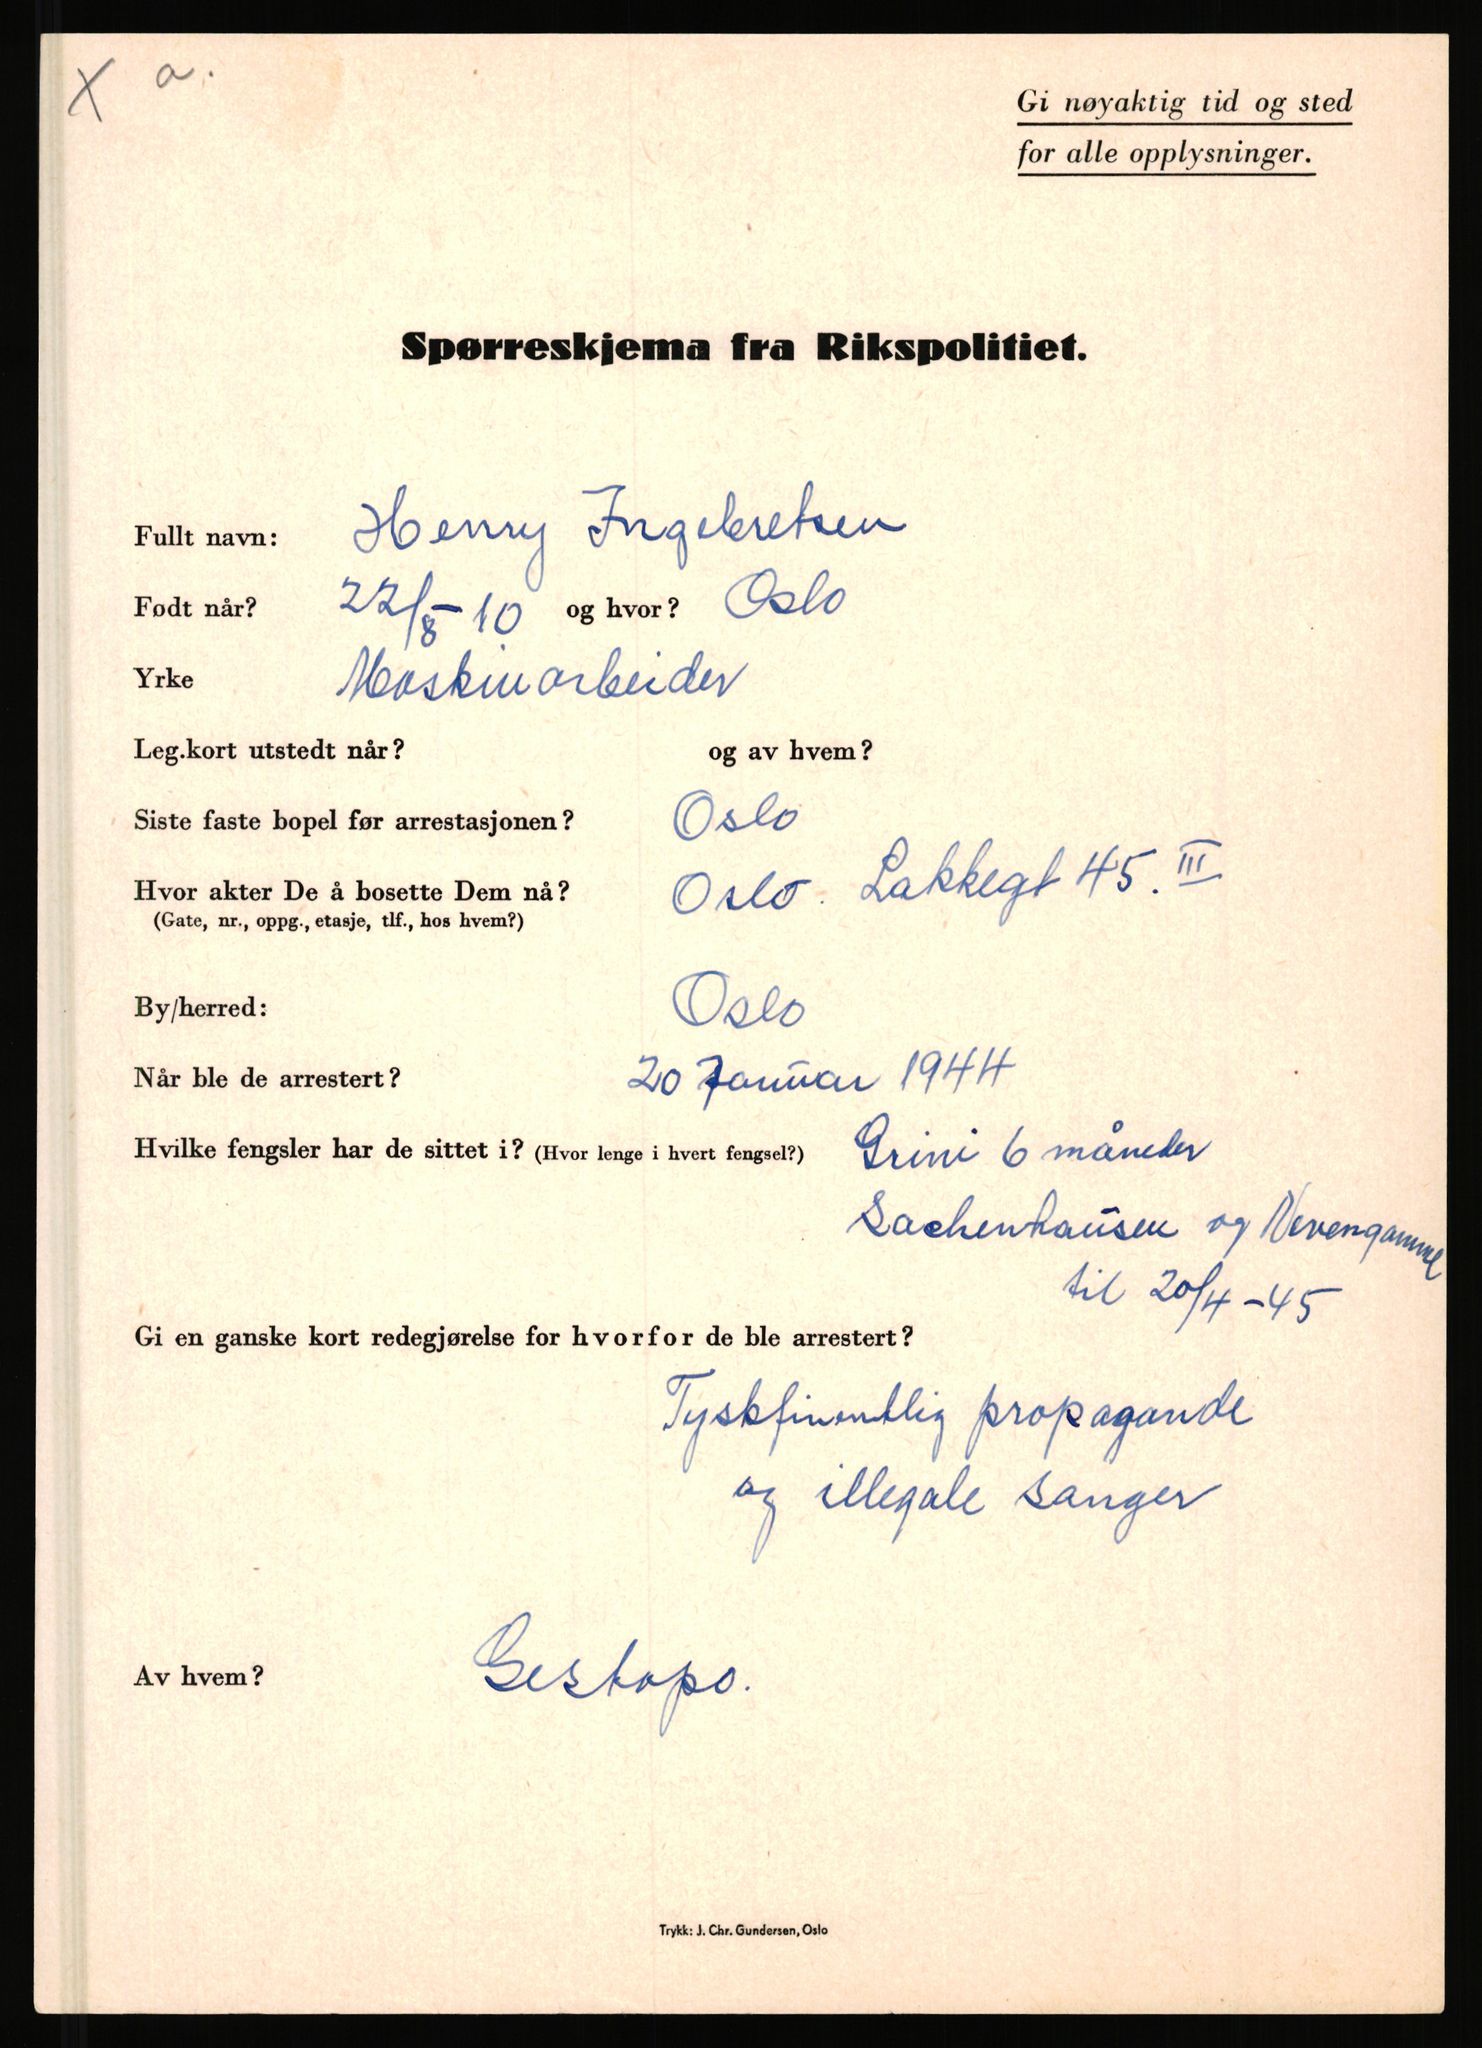 X a.
Gi nøyaktig tid og sted
for alle opplysninger.
Spørreskjema fra Rikspolitiet.
Fullt navn: Henry Ingebretsen
Født når? 22/8-10 og hvor? Oslo
Yrke Maskinarbeider
Leg.kort utstedt når? og av hvem?
Siste faste bopel før arrestasjonen? Oslo
Hvor akter De å bosette Dem nå? Oslo. Lakkegt 45. III
(Gate, nr., oppg., etasje, tlf., hos hvem?)
By/herred: Oslo
Når ble de arrestert? 20 Januar 1944
Hvilke fengsler har de sittet i? (Hvor lenge i hvert fengsel?) Grini 6 måneder
Sachenhausen og Nevengamme
til 20/4-45
Gi en ganske kort redegjørelse for hvorfor de ble arrestert?
Tyskfinentlig propagande
og illegale sanger
Av hvem? Gestapo.
Trykk: J. Chr. Gundersen, Oslo